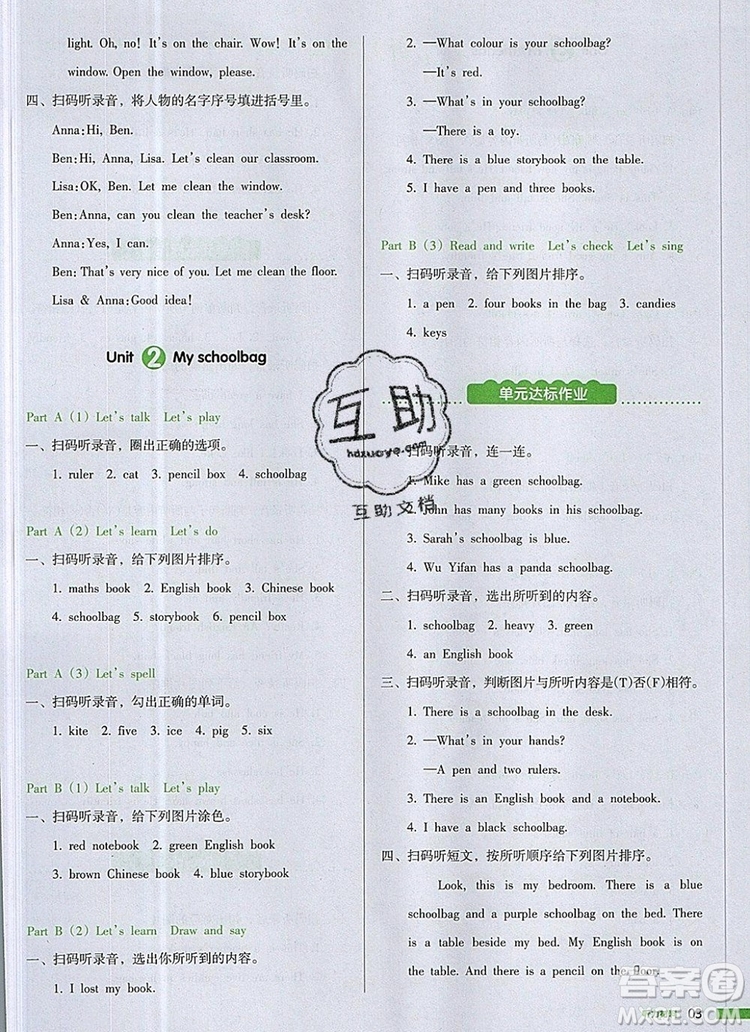 light. Oh, no! It's on the chair. Wow! It's on the
window. Open the window, please.
四、扫码听录音，将人物的名字序号填进括号里。
Anna:Hi, Ben.
Ben:Hi, Anna, Lisa. Let's clean our classroom.
Lisa:OK, Ben. Let me clean the window.
Ben:Anna, can you clean the teacher's desk?
Anna:Yes, I can.
Ben:That's very nice of you. Let me clean the floor.
Lisa & Anna:Good idea!
Unit 2 My schoolbag
Part A (1) Let's talk Let's play
一、扫码听录音，圈出正确的选项。
1. ruler 2. cat 3. pencil box 4. schoolbag
Part A (2) Let's learn Let's do
一、扫码听录音，给下列图片排序。
1. maths book 2. English book 3. Chinese book
4. schoolbag 5. storybook 6. pencil box
Part A (3) Let's spell
一、扫码听录音，勾出正确的单词。
1. kite 2. five 3. ice 4. pig 5. six
Part B (1) Let's talk Let's play
一、扫码听录音，给下列图片涂色。
1. red notebook 2. green English book
3. brown Chinese book 4. blue storybook
Part B (2) Let's learn Draw and say
一、扫码听录音，选出你所听到的内容。
1. I lost my book.
2. —What colour is your schoolbag?
—It's red.
3. —What's in your schoolbag?
—There is a toy.
4. There is a blue storybook on the table.
5. I have a pen and three books.
Part B (3) Read and write Let's check Let's sing
一、扫码听录音，给下列图片排序。
1. a pen 2. four books in the bag 3. candies
4. keys
单元达标作业
扫码听录音，连一连。
1. Mike has a green schoolbag.
2. John has many books in his schoolbag.
3. Sarah's schoolbag is blue.
4. Wu Yifan has a panda schoolbag.
二、扫码听录音，选出所听到的内容。
1. schoolbag 2. heavy 3. green
4. an English book
三、扫码听录音，判断图片与所听内容是(T)否(F)相符。
1. There is a schoolbag in the desk.
2. —What's in your hands?
—A pen and two rulers.
3. I have an English book and a notebook.
4. I have a black schoolbag.
四、扫码听短文，按所听顺序给下列图片排序。
Look, this is my bedroom. There is a blue
schoolbag and a purple schoolbag on the bed. There
is a table beside my bed. My English book is on
the table. And there is a pencil on the floor.
03
互助
hdzuoye.com
互助文档
答案圈